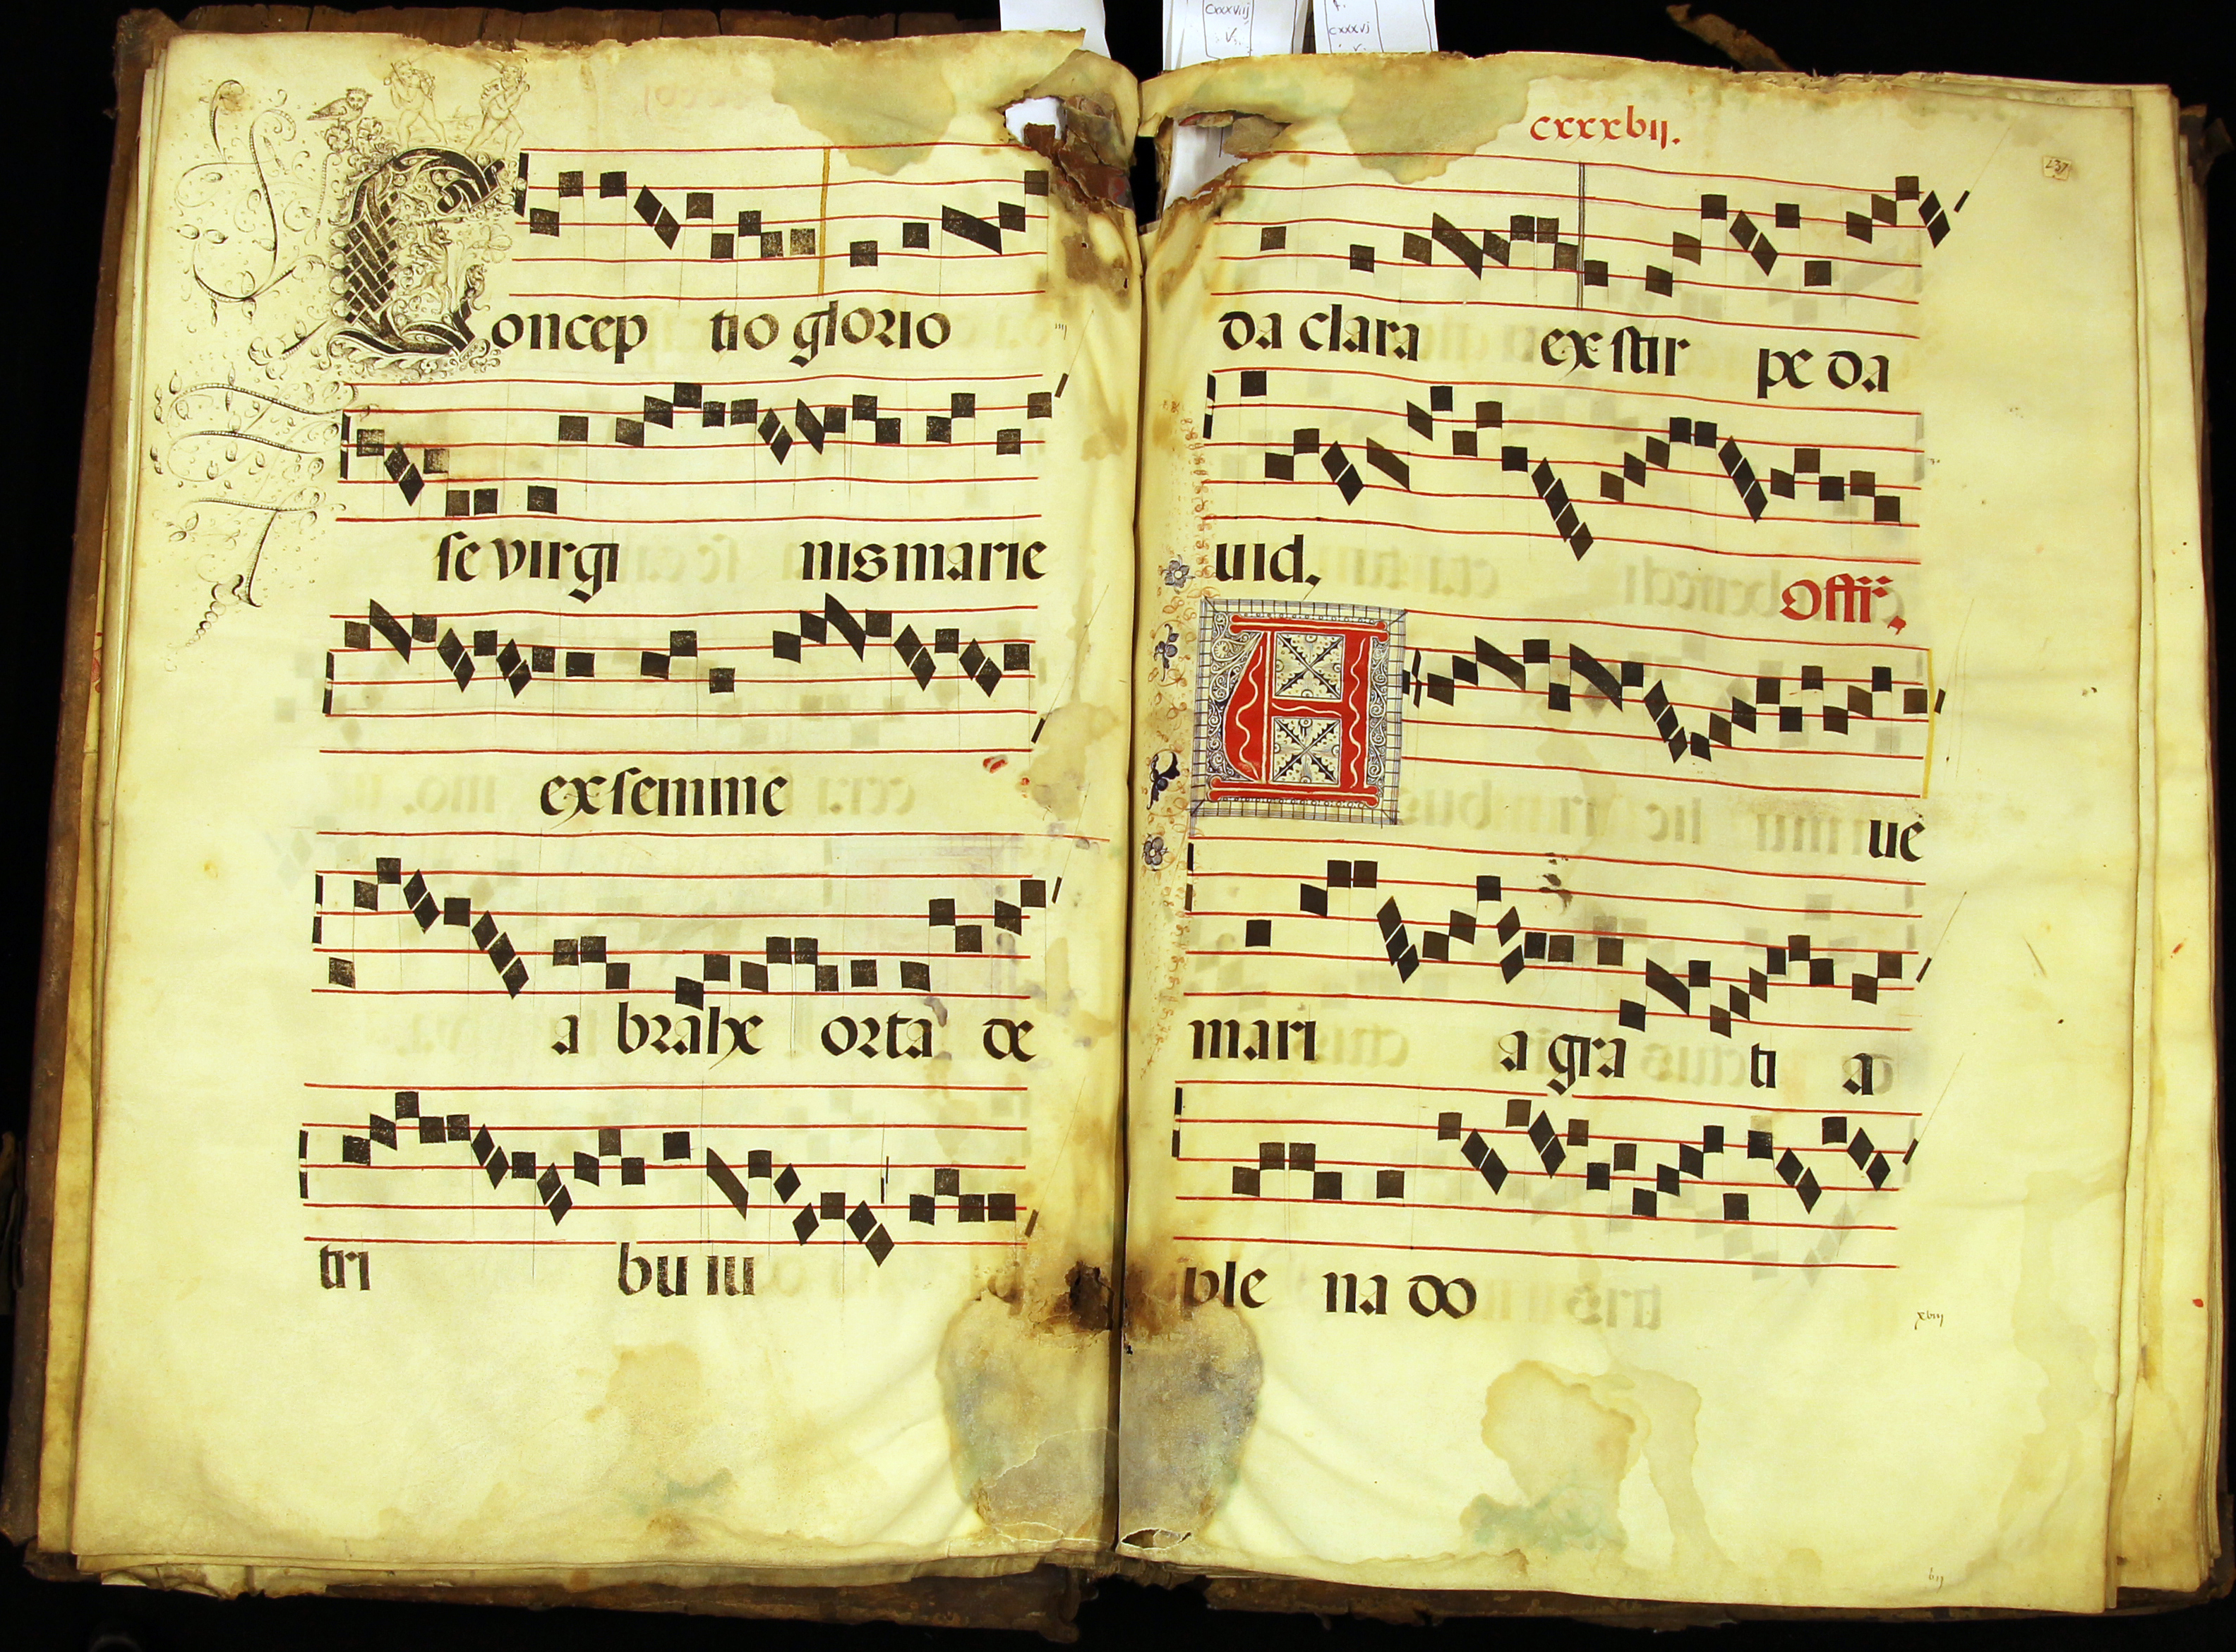 Concep tio glorio
se virgi nis marie
ex semine
a brahe orta de
tri bu iu
cxxxvij
v.
f.
cxxxvj
v.
cxxxbij.
137
da clara ex stir pe da
uid.
Offr̃
A ue
mari a gra ti a
ple na do
xbiij